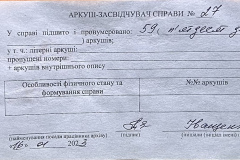 АРКУШ-ЗАСВІДЧУВАЧ СПРАВИ № 27
У справі підшито і пронумеровано: 59, п'ятдесят
) аркушів,
у т. ч.: літерні аркуші:
пропущені номери:
+ аркушів внутрішнього опису
Особливості фізичного стану та формування справи
№№ аркушів
(найменування посади працівника архіву)
(підпис)
16. 01 2023